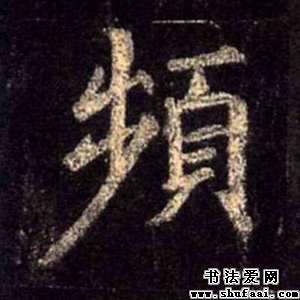 頻
书法爱网
www.shufaai.com